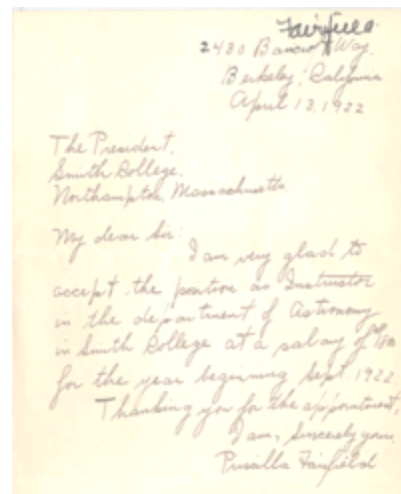 Fairfield
2430 Bancroft Way,
Berkeley, California
April 13, 1922
The President,
Smith College,
Northampton, Massachusetts.
My dear Sir:
I am very glad to
accept the position as Instructor
in the department of Astronomy
in Smith College at a salary of
for the year beginning Sept. 1922.
Thanking you for the appointment,
I am, Sincerely yours,
Priscilla Fairfield